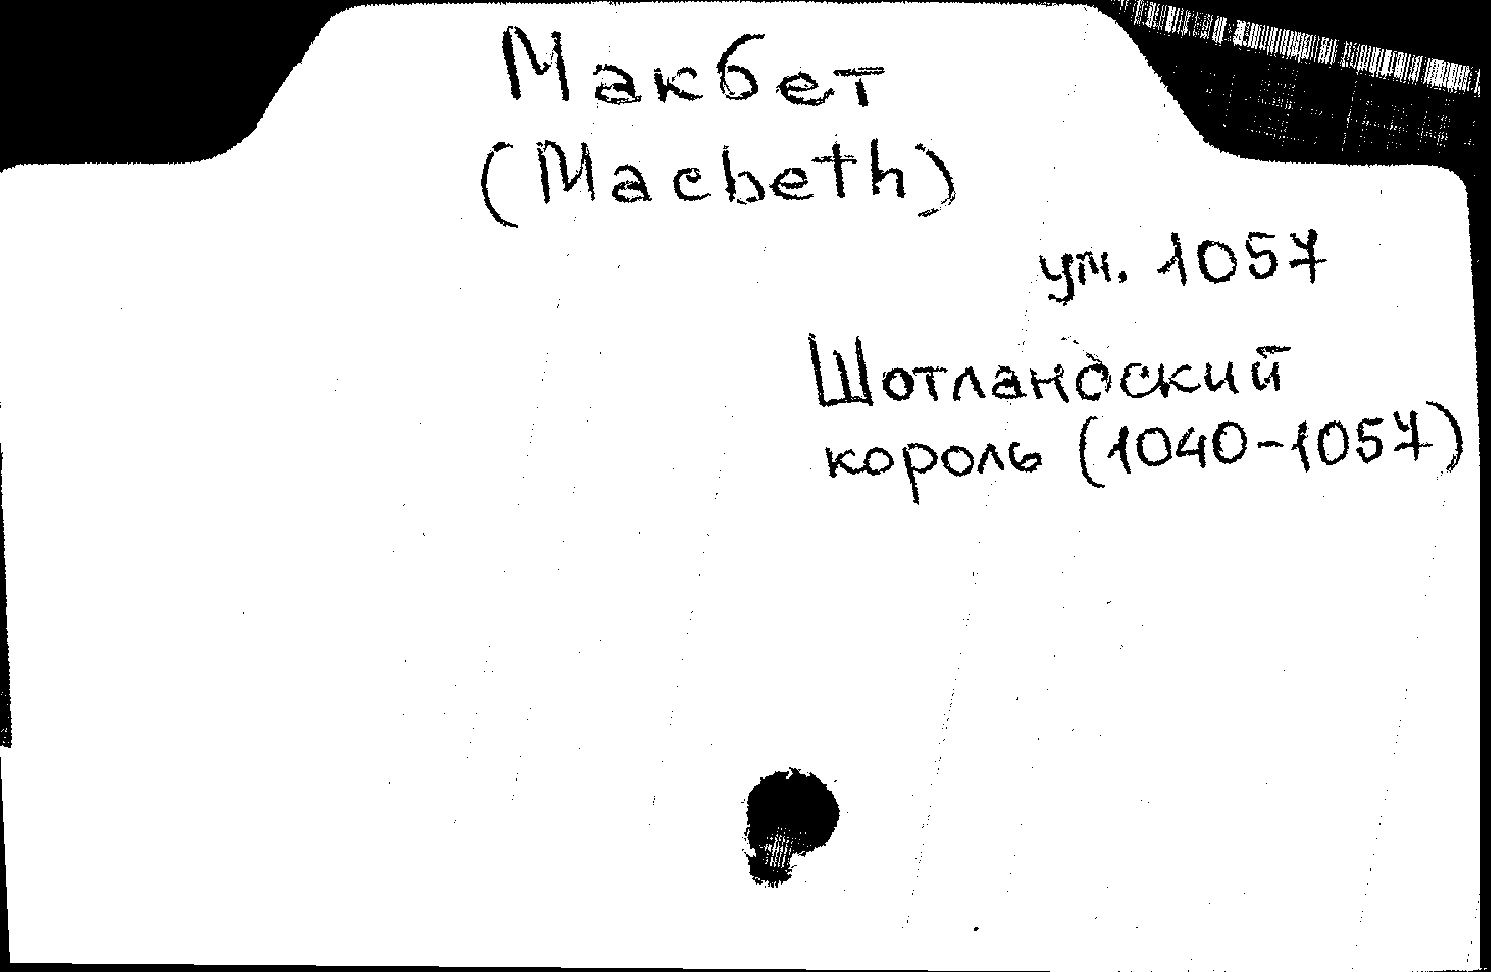 Макбет
(Macbeth)
ум. 1057
Шотландский
король (1040-1057)